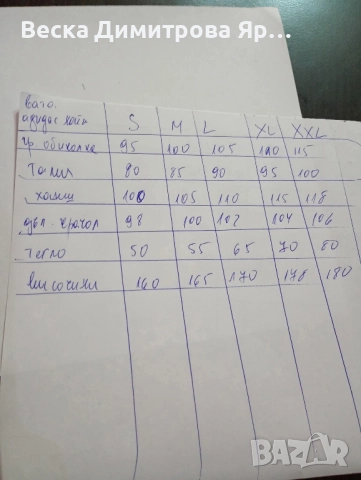 Веска Димитрова Яр...
Вата.
адидас хайп S M L XL XXL
гр. обиколка 95 100 105 110 115
талия 80 85 90 95 100
ханш 100 105 110 115 118
дъл. крачол 98 100 102 104 106
тегло 50 55 65 70 80
височини 160 165 170 178 180
BAZAR